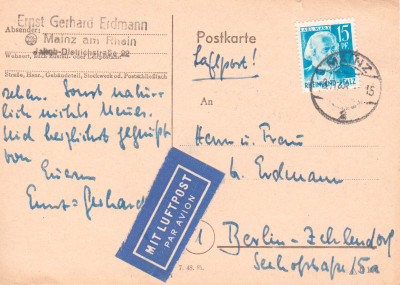 Ernst Gerhard Erdmann
Absender:
Mainz am Rhein
Jakob-Dietrichstraße 22
Wohnort, auch Zustell- oder Leitpostamt
Straße, Hausn., Gebäudeteil, Stockwerk od. Postschließfach
sehen. Sonst natür-
lich nichts Neues.
Und herzlichst gegrüßt
von
Eurem
Ernst-Gerhard
Postkarte
Luftpost!
An
Herrn und Frau
Erdmann
Berlin-Zehlendorf
Seehofstraße 15a
MIT LUFTPOST
PAR AVION
KARL MARX
15
PF
RHEINLAND-PFALZ
MAINZ
15
7. 48. Fl.